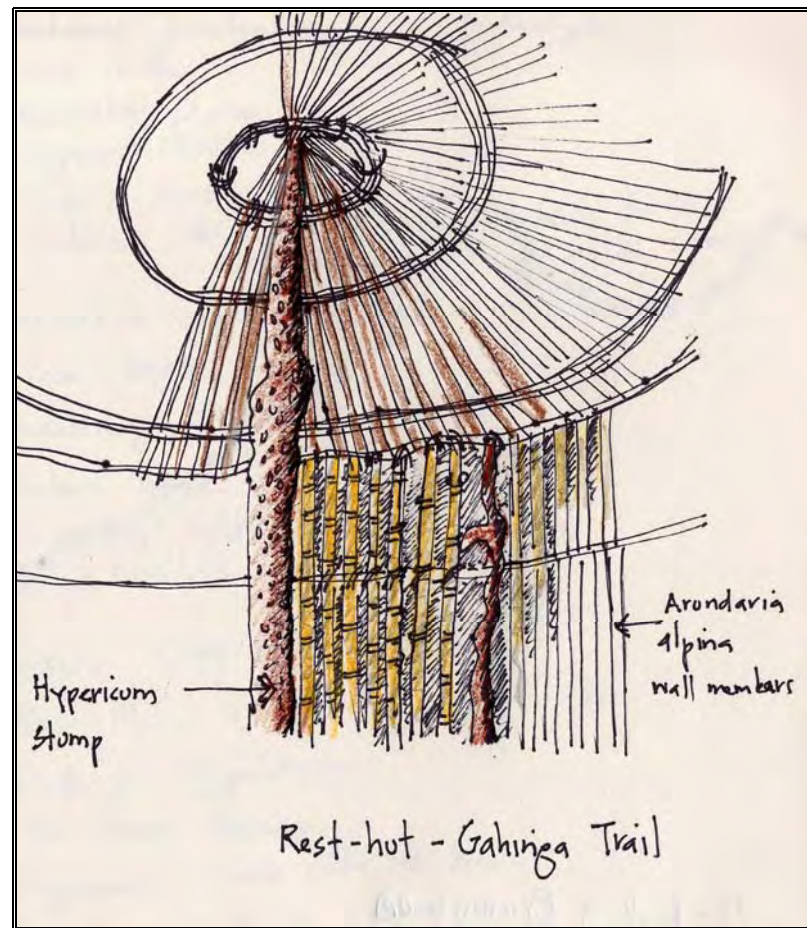 Arundaria
alpina
wall members
Hypericum
stump
Rest-hut - Gahinga Trail